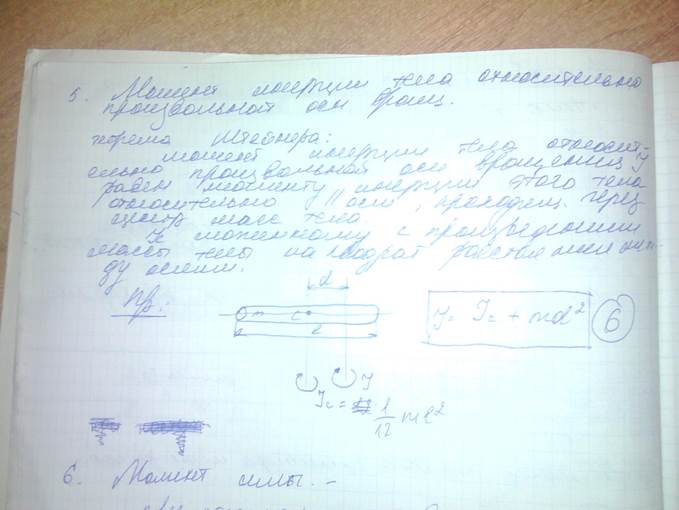 5. Момент инерции тела относительно
произвольной оси вращ.
теорема Штейнера:
момент инерции тела относит-
ельно произвольной оси вращения J
равен моменту инерции этого тела
относительно || оси, проходящ. через
центр масс тела.
с произведением
массы тела на квадрат расстояния меж-
ду осями.
Пр.:
d
m c
l
J = Jc + md² 6
J
Jc = 1/12 ml²
6. Момент силы. -